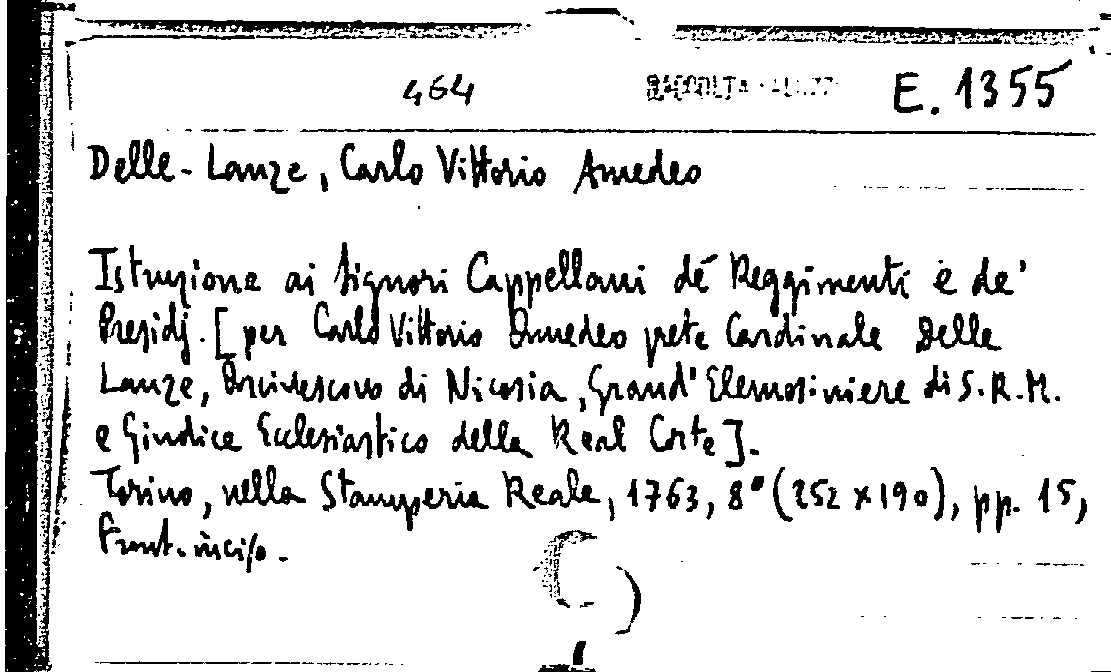 464 RACCOLTA E. 1355
Delle-Lanze, Carlo Vittorio Amedeo
Istruzione ai Signori Cappellani de' Reggimenti e de'
Presidj. [per Carlo Vittorio Amedeo prete Cardinale Delle
Lanze, Arcivescovo di Nicosia, Grand' Elemosiniere di S.R.M.
e Giudice Ecclesiastico della Real Corte].
Torino, nella Stamperia Reale, 1763, 8° (252 x 190), pp. 15,
Front. inciso.